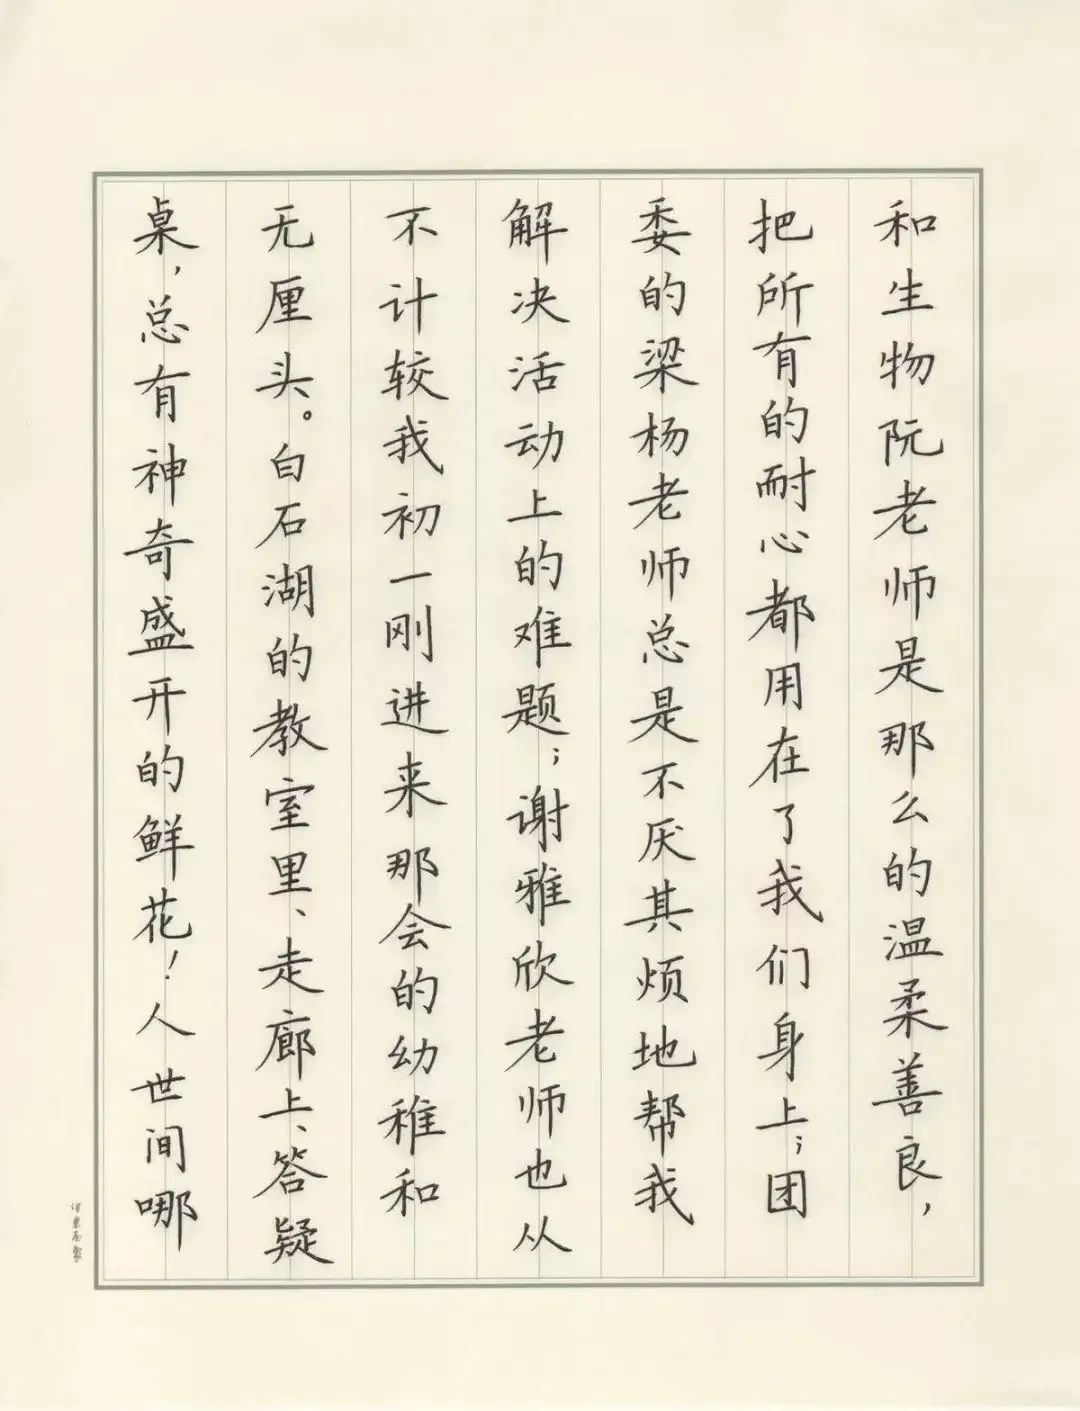 和生物阮老师是那么的温柔善良，
把所有的耐心都用在了我们身上；团
委的梁杨老师总是不厌其烦地帮我
解决活动上的难题；谢雅欣老师也从
不计较我初一刚进来那会的幼稚和
无厘头。白石湖的教室里、走廊上、答疑
桌，总有神奇盛开的鲜花！人世间哪